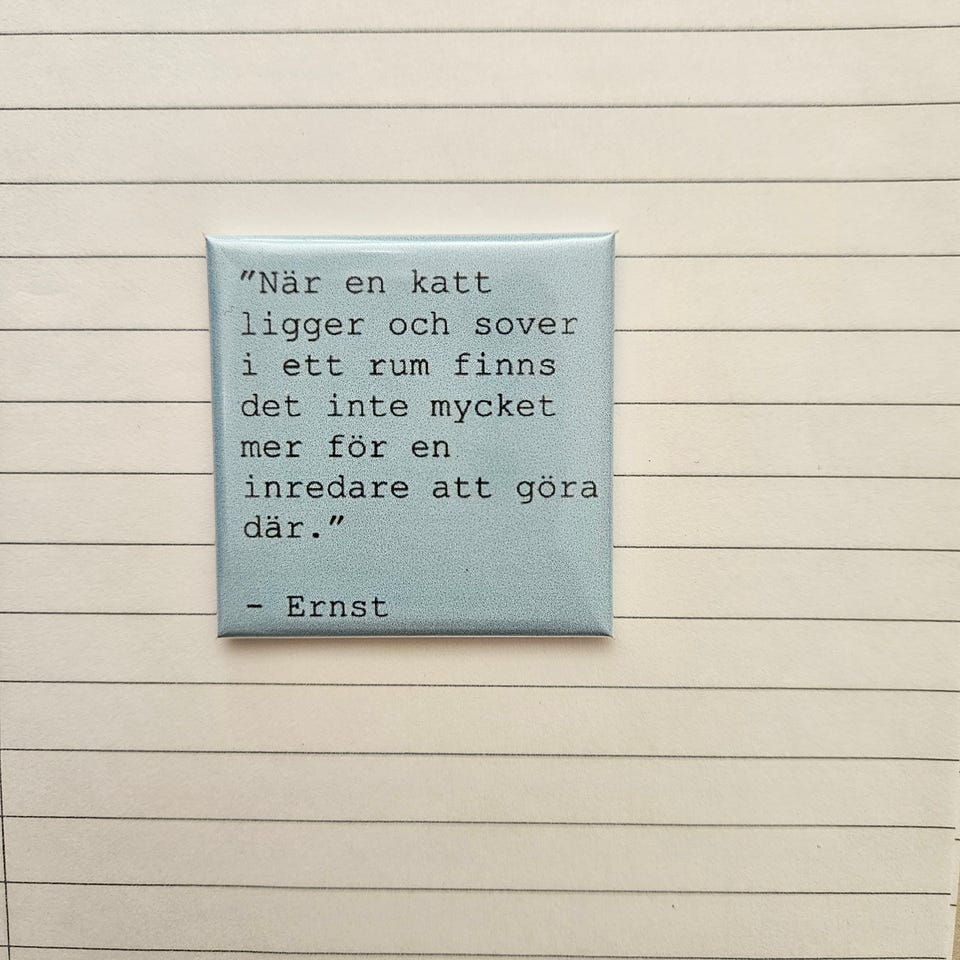 "När en katt
ligger och sover
i ett rum finns
det inte mycket
mer för en
inredare att göra
där."
- Ernst